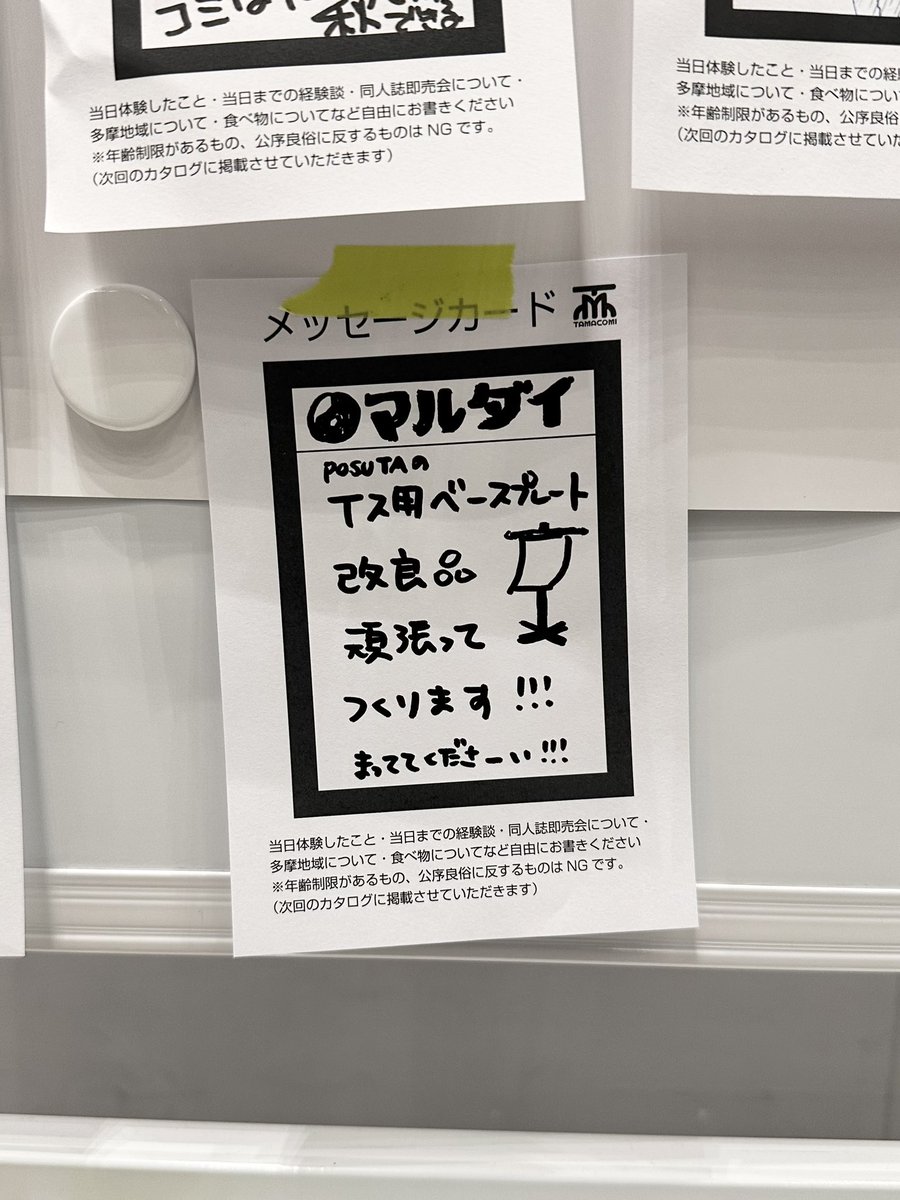 コミ
秋できる
当日体験したこと・当日までの経験談・同人誌即売会について・
多摩地域について・食べ物についてなど自由にお書きください
※年齢制限があるもの、公序良俗に反するものは NG です。
（次回のカタログに掲載させていただきます）
当日体験したこと・当日までの経
多摩地域について・食べ物につい
※年齢制限があるもの、公序良俗
（次回のカタログに掲載させていた
メッセージカード
TAMACOMI
マルダイ
POSUTAの
イス用ベースプレート
改良品
頑張って
つくります!!!
まっててくださーい!!!
当日体験したこと・当日までの経験談・同人誌即売会について・
多摩地域について・食べ物についてなど自由にお書きください
※年齢制限があるもの、公序良俗に反するものは NG です。
（次回のカタログに掲載させていただきます）